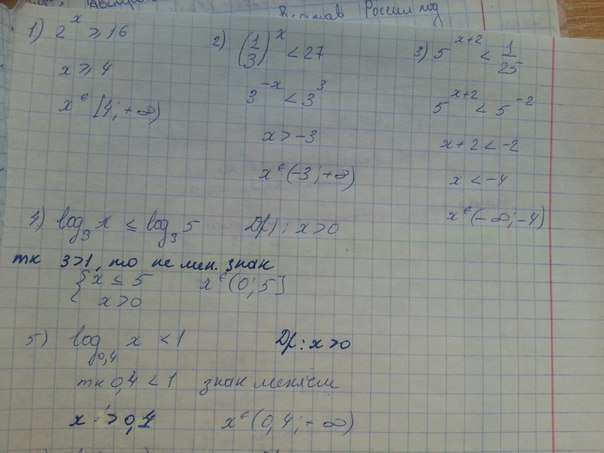 в состав России под
1) 2^x ≥ 16
x ≥ 4
x ∈ [4; +∞)
2) (1/3)^x < 27
3^-x < 3^3
x > -3
x ∈ (-3; +∞)
3) 5^x+2 < 1/25
5^x+2 < 5^-2
x+2 < -2
x < -4
x ∈ (-∞; -4)
4) log_3 x ≤ log_3 5 D(f): x>0
тк 3>1, то не мен. знак
{ x ≤ 5
x > 0
x ∈ (0; 5]
5) log_0,4 x < 1 D(f): x>0
тк 0,4 < 1 знак меняем
x > 0,4 x ∈ (0,4; +∞)